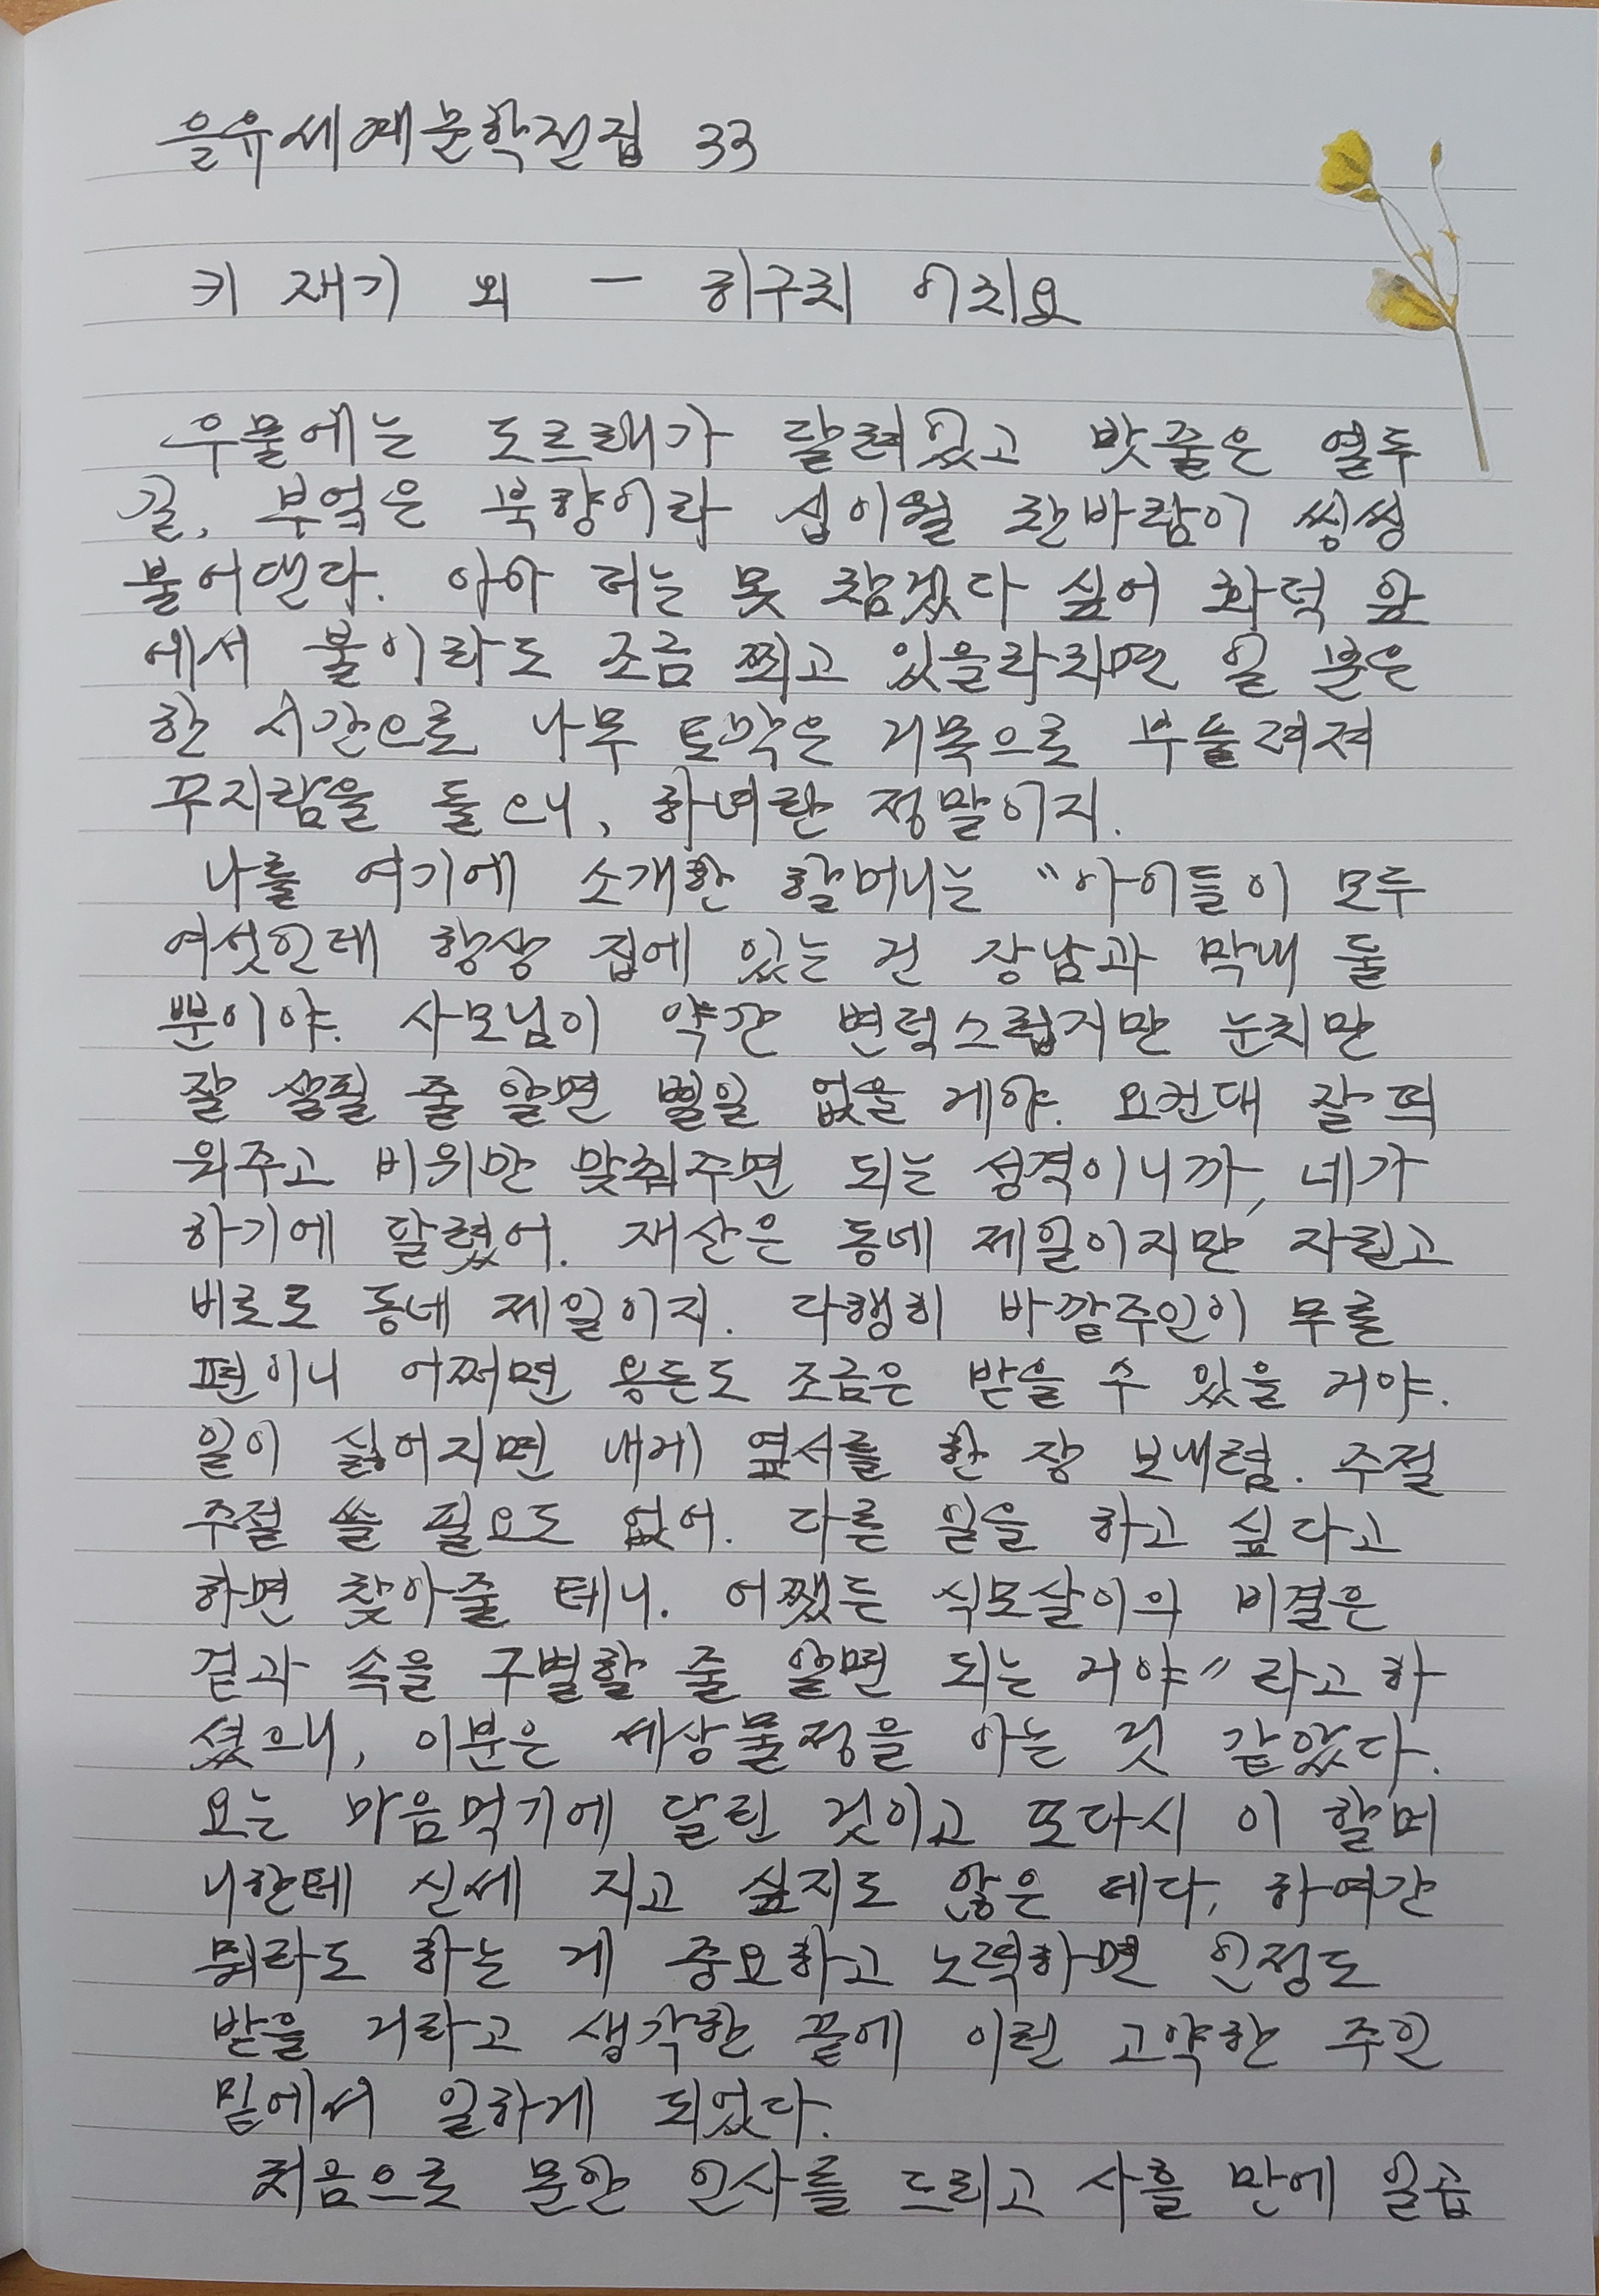 을유세계문학전집 33
키 재기 외 - 히구치 이치요
우물에는 도르래가 달려있고 밧줄은 열두
길, 부엌은 북향이라 섣이월 찬바람이 씽씽
불어댄다. 아아 더는 못 참겠다 싶어 화덕 앞
에서 불이라도 조금 쬐고 있을라치면 일 분은
한 시간으로 나무 토막은 거목으로 부풀려져
꾸지람을 들으니, 하녀란 정말이지.
나를 여기에 소개한 할머니는 "아이들이 모두
여섯인데 항상 집에 있는 건 장남과 막내 둘
뿐이야. 사모님이 약간 변덕스럽지만 눈치만
잘 살필 줄 알면 별일 없을 게야. 요컨대 잘 띄
워주고 비위만 맞춰주면 되는 성격이니까, 네가
하기에 달렸어. 재산은 동네 제일이지만 자린고
비로도 동네 제일이지. 다행히 바깥주인이 무를
편이니 어쩌면 용돈도 조금은 받을 수 있을 거야.
일이 싫어지면 내게 엽서를 한 장 보내렴. 주절
주절 쓸 필요도 없어. 다른 일을 하고 싶다고
하면 찾아줄 테니. 어쨌든 식모살이의 비결은
겉과 속을 구별할 줄 알면 되는 거야" 라고 하
셨으니, 이분은 세상물정을 아는 것 같았다.
모는 마음먹기에 달린 것이고 또다시 이 할머
니한테 신세 지고 싶지도 않은 데다, 하여간
뭐라도 하는 게 중요하고 노력하면 인정도
받을 거라고 생각한 끝에 이런 고약한 주인
밑에서 일하게 되었다.
처음으로 문안 인사를 드리고 사흘 만에 일곱